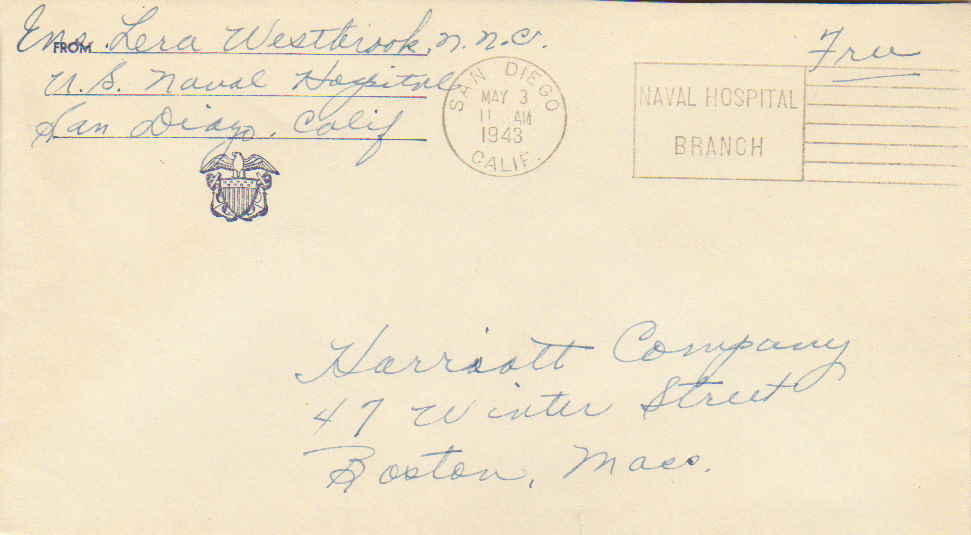 FROM Ens. Lera Westbrook, N.N.C.
U.S. Naval Hospital
San Diego. Calif
SAN DIEGO
MAY 3
11 AM
1943
CALIF.
NAVAL HOSPITAL
BRANCH
Free
Harriott Company
47 Winter Street
Boston, Mass.